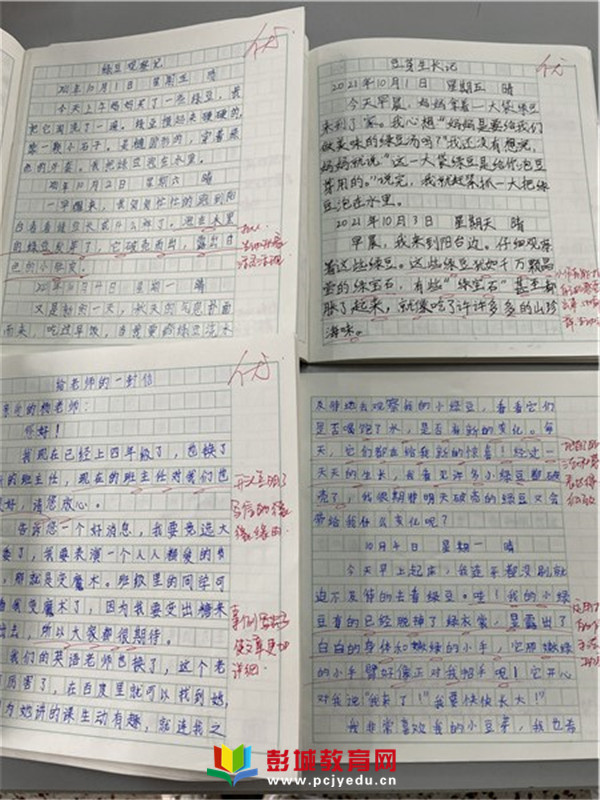 绿豆观察记
2021年10月1日 星期五 晴
今天上午妈妈买了一些绿豆,我
把它淘洗了一遍。绿豆摸起来硬硬的,
像一颗小石子。是椭圆形的,穿着绿
色的外套。我把绿豆泡在水里。
2021年10月2日 星期六 晴
一早醒来,我匆匆忙忙的跑到阳
台看看绿豆长成什么样了。泡在水里
的绿豆发芽了,它破壳而出,露出白
色的小脚
2021年10月4日 星期一 晴
又是新的一天,秋天的气息扑面
而来,吃过早饭,
优
豆芽生长记
2021年10月1日 星期五 晴
今天早晨,妈妈拿着一大袋绿豆
来到了家。我心想“妈妈是要给我们
做美味的绿豆汤吗?”我还没有想完,
妈妈就说“这一大袋绿豆是给你泡豆
芽用的。”说完,我就赶紧抓一大把绿
豆泡在水里。
2021年10月3日 星期天 晴
早晨,我来到阳台边。仔细观察
着这些绿豆。这些绿豆犹如千万颗晶
莹的绿宝石,有些“绿宝石”甚至都
胀了起来,就像吃了许许多多的山珍
海味。
优
给老师的一封信
的老师:
你好!
我现在已经上四年级了,也换了
新的班主任,现在的班主任对我们也
很好,请您放心。
告诉您一个好消息,我要竞选大
委了,我要表演一个人人都爱的节
,那就是变魔术。班级里的同学可
看我变魔术了,因为我要变出糖来
出去,所以大家都很期待。
我们的英语老师也换了,这个老
厉害了,在百度里就可以找到她,
为她讲的课生动有趣,就连我之
优
开头写明了
写信的缘
事例写具体
使文章更加
详细.
及待地去观察我的小绿豆,看看它们
是否喝饱了水,是否有新的变化。每
天,它们都在给我新的惊喜!经过一
天天的生长,我看见许多小绿豆都破
壳了,我很期待明天破壳的绿豆又会
带给我什么变化呢?
10月4日 星期一 晴
今天早上起床,我连牙都没刷就
迫不及待的去看绿豆。哇!我的小绿
豆有的已经脱掉了绿衣裳,是露出了
白白的身体和嫩绿的小手,它那嫩绿
的小手臂好像正对我招手呢!它开心
对我说“我来了!”我要快快长大!”
我非常喜欢我的小豆芽,我也希
彭城教育网
www.pcjyedu.cn